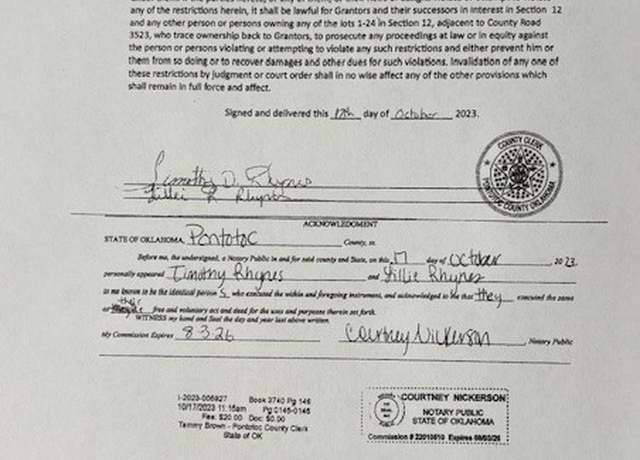 any of the restrictions herein, it shall be lawful for Grantors and their successors in interest in Section 12
and any other person or persons owning any of the lots 1-24 in Section 12, adjacent to County Road
3523, who trace ownership back to Grantors, to prosecute any proceedings at law or in equity against
the person or persons violating or attempting to violate any such restrictions and either prevent him or
them from so doing or to recover damages and other dues for such violations. Invalidation of any one of
these restrictions by judgment or court order shall in no wise affect any of the other provisions which
shall remain in full force and effect.
Signed and delivered this 17th day of October 2023.
Timothy D. Rhynes
Lillie R Rhynes
COUNTY CLERK
PONTOTOC COUNTY OKLAHOMA
ACKNOWLEDGMENT
STATE OF OKLAHOMA, Pontotoc County, ss.
Before me, the undersigned, a Notary Public in and for said county and State, on this 17 day of October, 2023.
personally appeared Timothy Rhynes and Lillie Rhynes
to me known to be the identical person s who executed the within and foregoing instrument, and acknowledged to me that they executed the same
as their free and voluntary act and deed for the uses and purposes therein set forth.
WITNESS my hand and Seal the day and year last above written.
My Commission Expires 8-3-26 Courtney Nickerson Notary Public
I-2023-006927 Book 3740 Pg 146
10/17/2023 11:15am Pg 0145-0146
Fee: $20.00 Doc: $0.00
Tammy Brown - Pontotoc County Clerk
State of OK
COURTNEY NICKERSON
NOTARY PUBLIC
STATE OF OKLAHOMA
Commission # 22010610 Expires 08/03/26